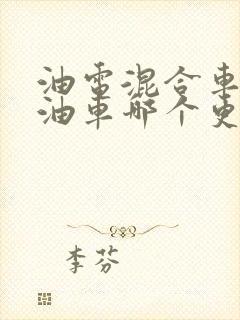 油電混合車
油車哪个更
李芬